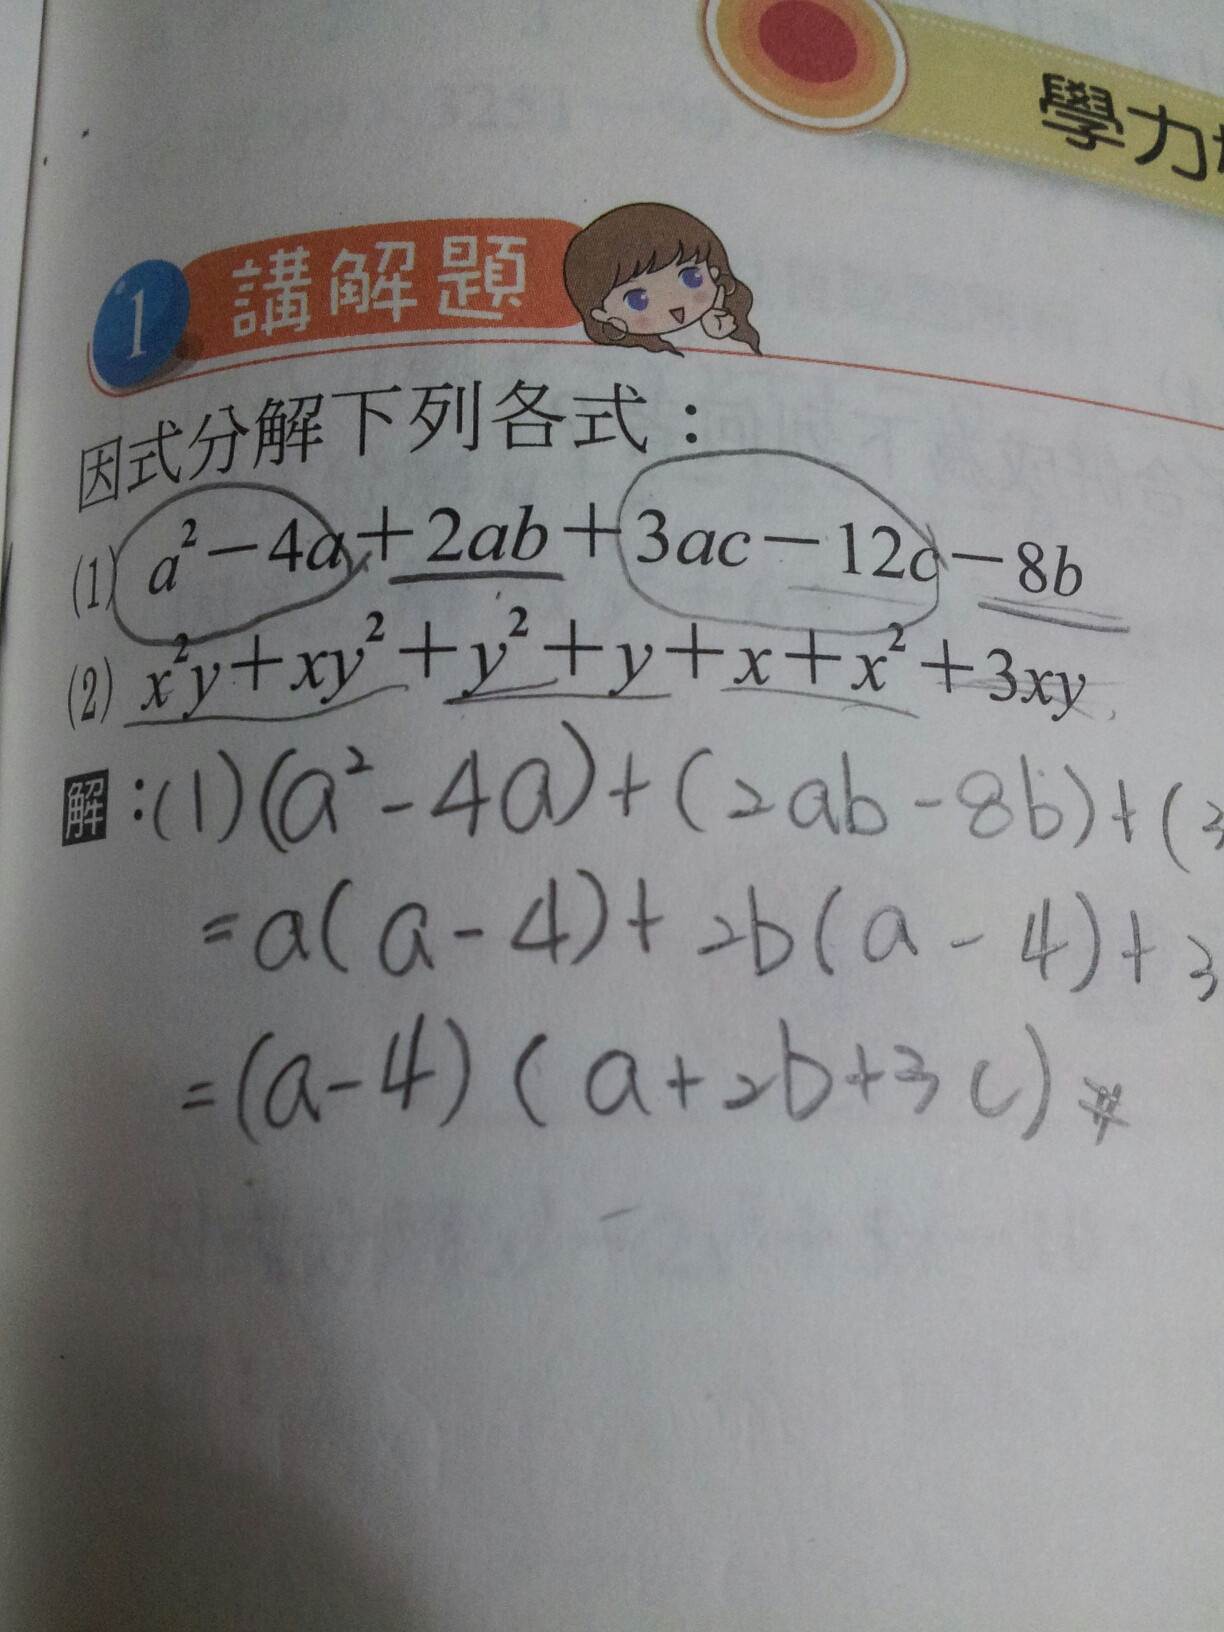 學力
1 講解題
因式分解下列各式：
(1) a²－4a＋2ab＋3ac－12c－8b
(2) x²y＋xy²＋y²＋y＋x＋x²＋3xy
解：(1)(a²-4a)+(2ab-8b)+(3
=a(a-4)+2b(a-4)+3
=(a-4)(a+2b+3c)